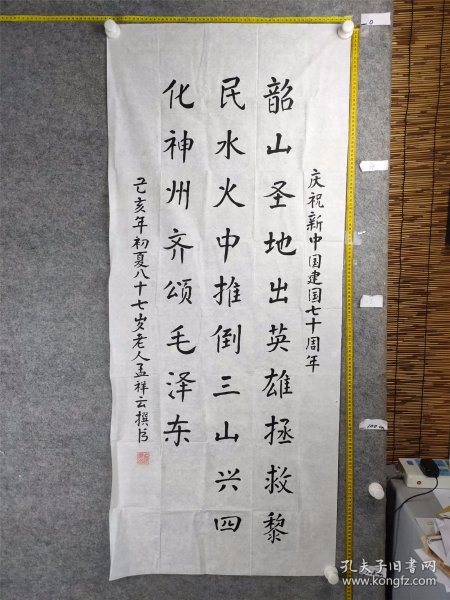 庆祝新中国建国七十周年
韶山圣地出英雄拯救黎
民水火中推倒三山兴四
化神州齐颂毛泽东
己亥年初夏八十七岁老人孟祥云撰书
孔夫子旧书网
www.kongfz.com